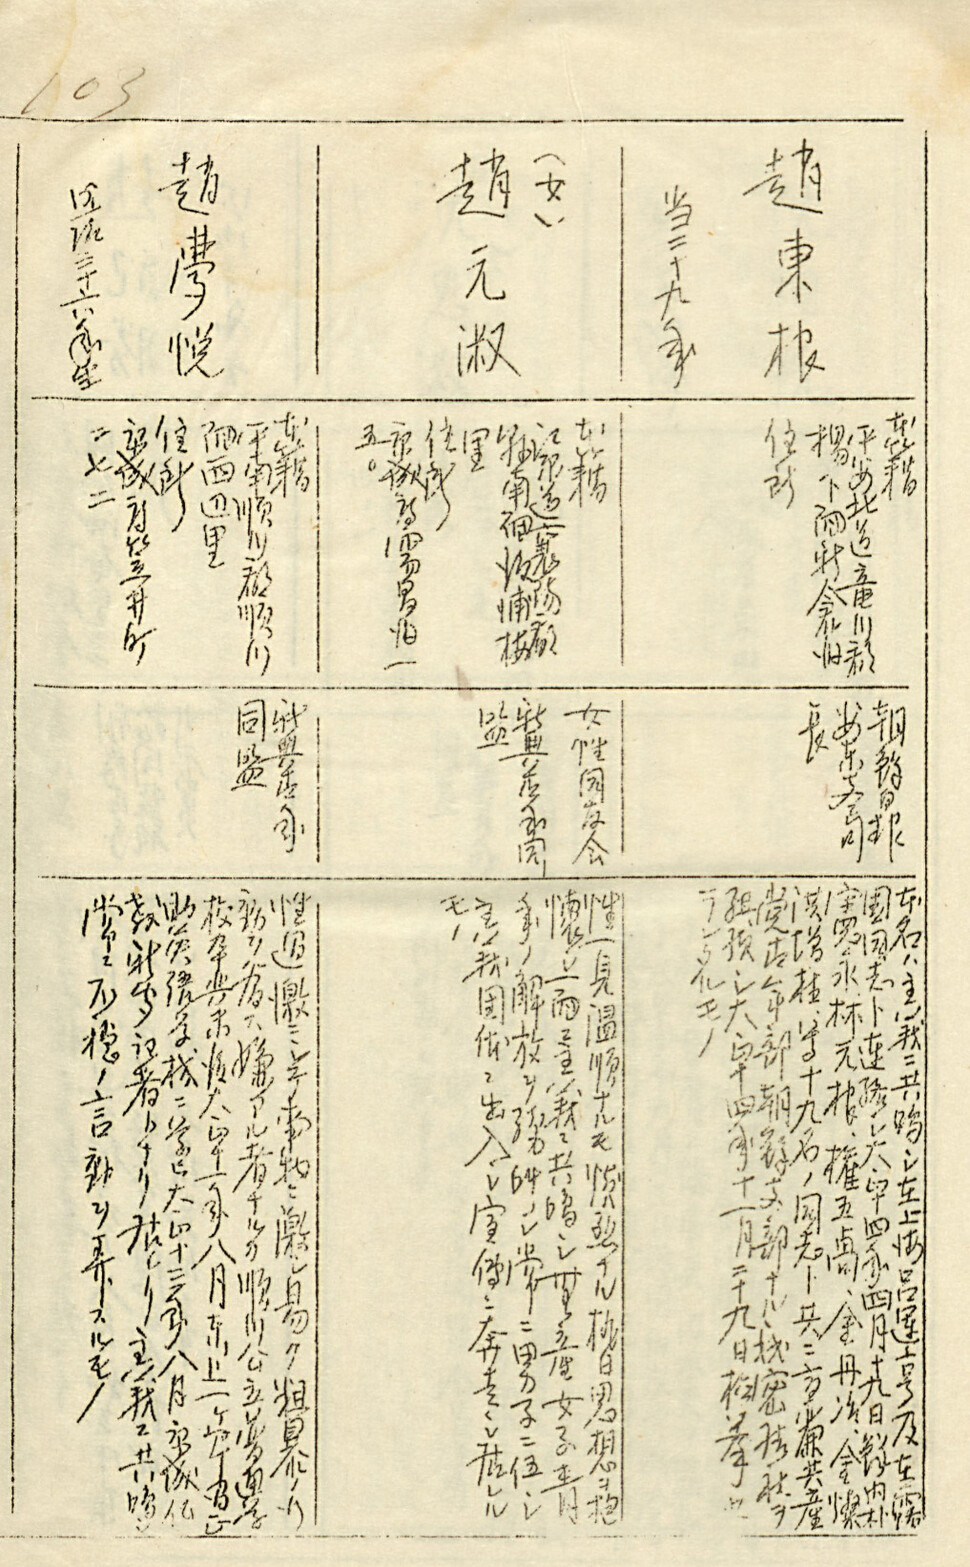 103
趙東根
当二十九年
本籍
平安北道竜川郡
楊下面新倉洞
住所
朝鮮日報
安東支局
長
本名ハ主義ニ共鳴シ在上海呂運亨及在露
国同志ト連絡シ大正十四年四月十九日鮮内朴
憲永、林元根、権五卨、金丹冶、金燦
洪増植等十九名ノ同志ト共ニ高麗共産
党青年部朝鮮支部ナル秘密結社ヲ
組織シ大正十四年十一月二十九日検挙セ
ラレタルモノ
(女)
趙元淑
本籍
江原道襄陽郡
県南面仁浦梅
里
住所
京城府需昌洞一
五〇
女性同友会
新興青年同
盟
性一見温順ナルモ慓悍ナル抗日思想ヲ抱
懐シ而モ主義ニ共鳴シ無産女子青
年ノ解放ヲ強調シ常ニ男子ニ伍シ
主義団体ニ出入シ宣伝ニ奔走シ居レル
モノ
趙夢悦
明治三十六年生
本籍
平南順川郡順川
面西辺里
住所
京城府笠井町
二七二
新興青年
同盟
性過激ニシテ事物ニ激シ易ク粗暴ノ行
動ヲ為ス嫌アル者ナルカ順川公立普通学
校卒業後大正十一年八月東上一ヶ年間正
則英語学校ニ学ヒ大正十二年八月京城仏
教新聞記者トナリ居レリ主義ニ共鳴シ
常ニ不穏ノ言動ヲ弄スルモノ